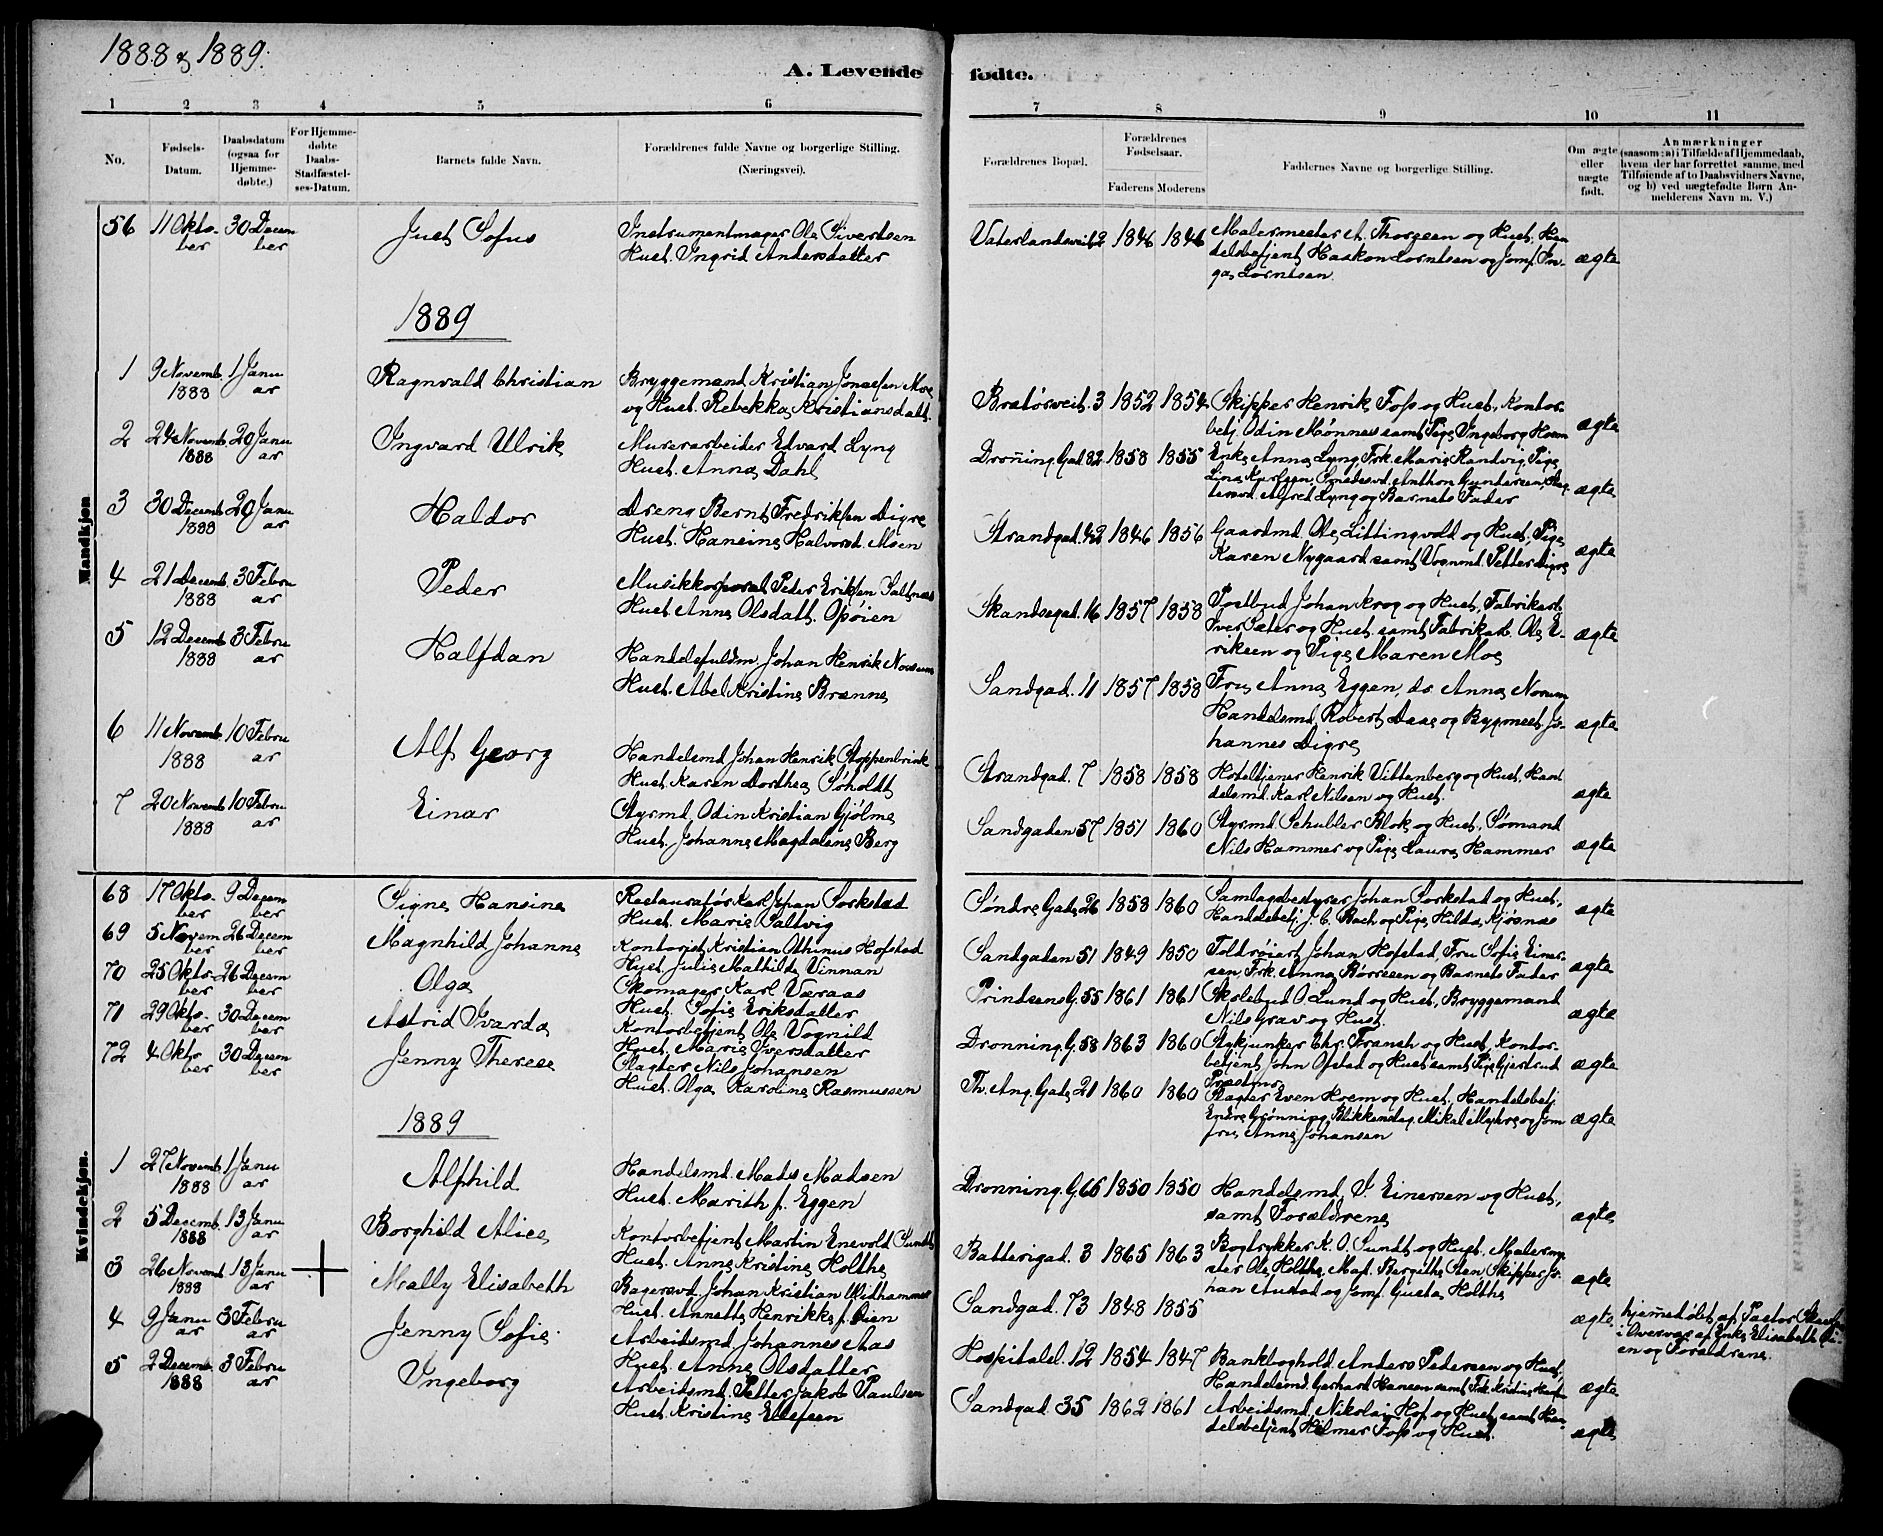 1888 & 1889.
A. Levende fødte.
1 2 3 4 5 6 7 8 9 10 11
No.
Fødsels-Datum.
Daabsdatum (ogsaa for Hjemme-døbte.)
For Hjemme-døbte Daabs-Stadfæstel-ses-Datum.
Barnets fulde Navn.
Forældrenes fulde Navne og borgerlige Stilling. (Næringsvei).
Forældrenes Bopæl.
Forældrenes Fødselsaar.
Faderens Moderens
Faddernes Navne og borgerlige Stilling.
Om ægte eller uægte født.
Anmærkninger
(saasom: a) i Tilfælde af Hjemmedaab,
hvem der har forrettet samme, med
Tilføiende af to Daabsvidners Navne,
og b) ved uægtefødte Børn An-
melderens Navn m. V.)
Mandkjøn
56 11 Okto-ber 30 Decem ber Just Sofus Instrumentmager Ole Sivertsen
Hust. Ingrid Andersdatter
Vaterlandsveit 2 1846 1846 Malermester A. Thorsen og Hust. Han
delsbetjent Haakon Lorntsen og Jomf. In-
ga Lorntsen. ægte
1889
1 9 Novemb. 1888 1 Janu ar Ragnvald Christian Bryggemand Kristian Jonassen Moe
og Hust. Rebekka Kristiansdatt.
Bratørveit. 3 1852 1854 Skipper Henrik Foss og Hust. Kontor-
betj. Odin Mønnes samt Pige Ingeborg Hoem ægte
2 24 Novemb. 1888 20 Janu ar Ingvard Ulrik Murerarbeider Edvard Lyng
Hust. Anna Dahl
Droñing. Gad. 82 1858 1855 Enke Anna Lyng, Frk. Marie Randvig, Pige
Lina Karlsen, Snedkersvd. Anthon Gundersen,
Alfred Lyng og Barnets Fader ægte
3 30 Decemb. 1888 20 Janu ar Haldor Dreng Bernt Fredriksen Digre
Hust. Hansine Halvorsd. Moen
Strandgad. 42 1846 1856 Gaardmd. Ole Littingvold og Hust. Pige
Karen Nygaard samt Vognmd. Petter Digre ægte
4 21 Decemb. 1888 3 Febru ar Peder Musikkorporal Peder Eriksen Saltnes
Hust. Anne Olsdatt. Opøien
Skandsegad. 16 1857 1858 Postbud Johan Krog og Hust, Fabrikarb.
Iver Sæter og Hust. samt Fabrikarb. Ole E-
riksen og Pige Maren Moe ægte
5 12 Decemb. 1888 3 Febru ar Halfdan Handelsfuldm. Johan Henrik Norum
Hust. Abel Kristine Brænne
Sandgad. 11 1857 1858 Fru Anna Eggen, do Anna Norum
Handelsmd. Robert Daae og Bygmest. Jo-
hannes Digre ægte
6 11 Novemb. 1888 10 Febru ar Alf Georg Handelsmd Johan Henrik Stoppenbrink
Hust. Karen Dorthea Søholdt
Strandgad. 7 1858 1858 Hoteltjener Henrik Vittenberg og Hust, Han
delsmd. Karl Nilsen og Hust. ægte
7 20 Novemb 1888 10 Febru ar Einar Styrmd. Odin Kristian Gjølme
Hust. Johanne Magdalene Berg
Sandgaden 57 1851 1860 Styrmd. Schubler Blok og Hust. Sømand
Nils Hammer og Pige Laura Hammer ægte
Kvindekjøn.
68 17 Okto-ber 9 Decem ber Signe Hansine Restauratør Karl Johan Sorkstad
Hust. Marie Saltvig
Søndre Gade 26 1858 1860 Samlagsbestyrer Johan Sorkstad og Hust.
Handelsbetj. J. C. Bach og Pige Hilda Kjøsnes ægte
69 5 Novem ber 26 Decem ber Magnhild Johanne Kontorist Kristian Othinus Hofstad
Hust Julie Mathilde Vinnan
Sandgaden 51 1849 1850 Toldrøiert Johan Hofstad, Fru Sofie Einer-
sen, Frk. Anna Børresen og Barnets Fader ægte
70 25 Okto-ber 26 Decem ber Olga Skomager Karl Væraas
Hust. Sofie Eriksdatter
Prindsens G. 55 1861 1861 Skolebud O Lund og Hust, Bryggemand
Nils Grav og Hust. ægte
71 29 Okto-ber 30 Decem ber Astrid Ivarda Kontorbetjent Ole Vognild
Hust. Marie Iversdatter
Dronning. G. 58 1863 1860 Stykjunker Chr. Fransh og Hust, Kontor-
betjent John Opstad og Hust samt Pige Gjertrud
Præstmo ægte
72 4 Okto ber 30 Decem ber Jenny Therese Slagter Nils Johansen
Hust. Olga Karoline Rasmussen
Th. Ang. Gade 21 1860 1860 Slagter Even Hoem og Hust, Handelsbetj.
Endre Grønning, Blikkenslag. Mikal Myhre og Jom
fru Anna Johansen ægte
1889
1 27 Novemb 1888 1 Janu ar Alfhild Handelsmd. Mats Madsen
Hust. Marith f. Eggen
Dronning. G. 65 1850 1850 Handelsmd. P. Einersen og Hust,
samt Forældrene ægte
2 5 Decemb. 1888 13 Janu ar Borghild Alice Kontorbetjent Martin Enevold Sundt
Hust. Anna Kristine Holthe
Batterigad. 3 1865 1863 Bogtrykker K. O. Sundt og Hust. Malerme
ster Ole Holthe, Mad. Bergithe Sten Skipper Jo-
han Austad og Jomf. Gusta Holthe ægte
3 26 Novemb 1888 13 Janu ar Mally Elisabeth Bagersvd. Johan Kristian Midhammer
Hust. Annette Henrikke f. Øien
Sandgad. 73 1848 1855 ægte hjemmedøbt af Pastor
i Overvær af Enke Elisabeth Øi-
en og Forældrene.
4 9 Janu ar 3 Febru ar Jenny Sofie. Arbeidsmd Johannes Aas
Hust. Anne Olsdatter
Hospitalsl. 12 1854 1847 Bankboghold. Anders Pedersen og Hust,
Handelsmd. Gerhard Hansen samt Frk. Kristine Hansen ægte
5 2 Decemb. 1888 3 Febru ar Ingeborg Arbeidsmd. Petter Jakob Paulsen
Hust. Kristine Ellefsen
Sandgad. 35 1862 1861 Arbeidsmd. Nikolai Hof og Hust, samt Han-
delsbetjent Hilmer Foss og Hust. ægte